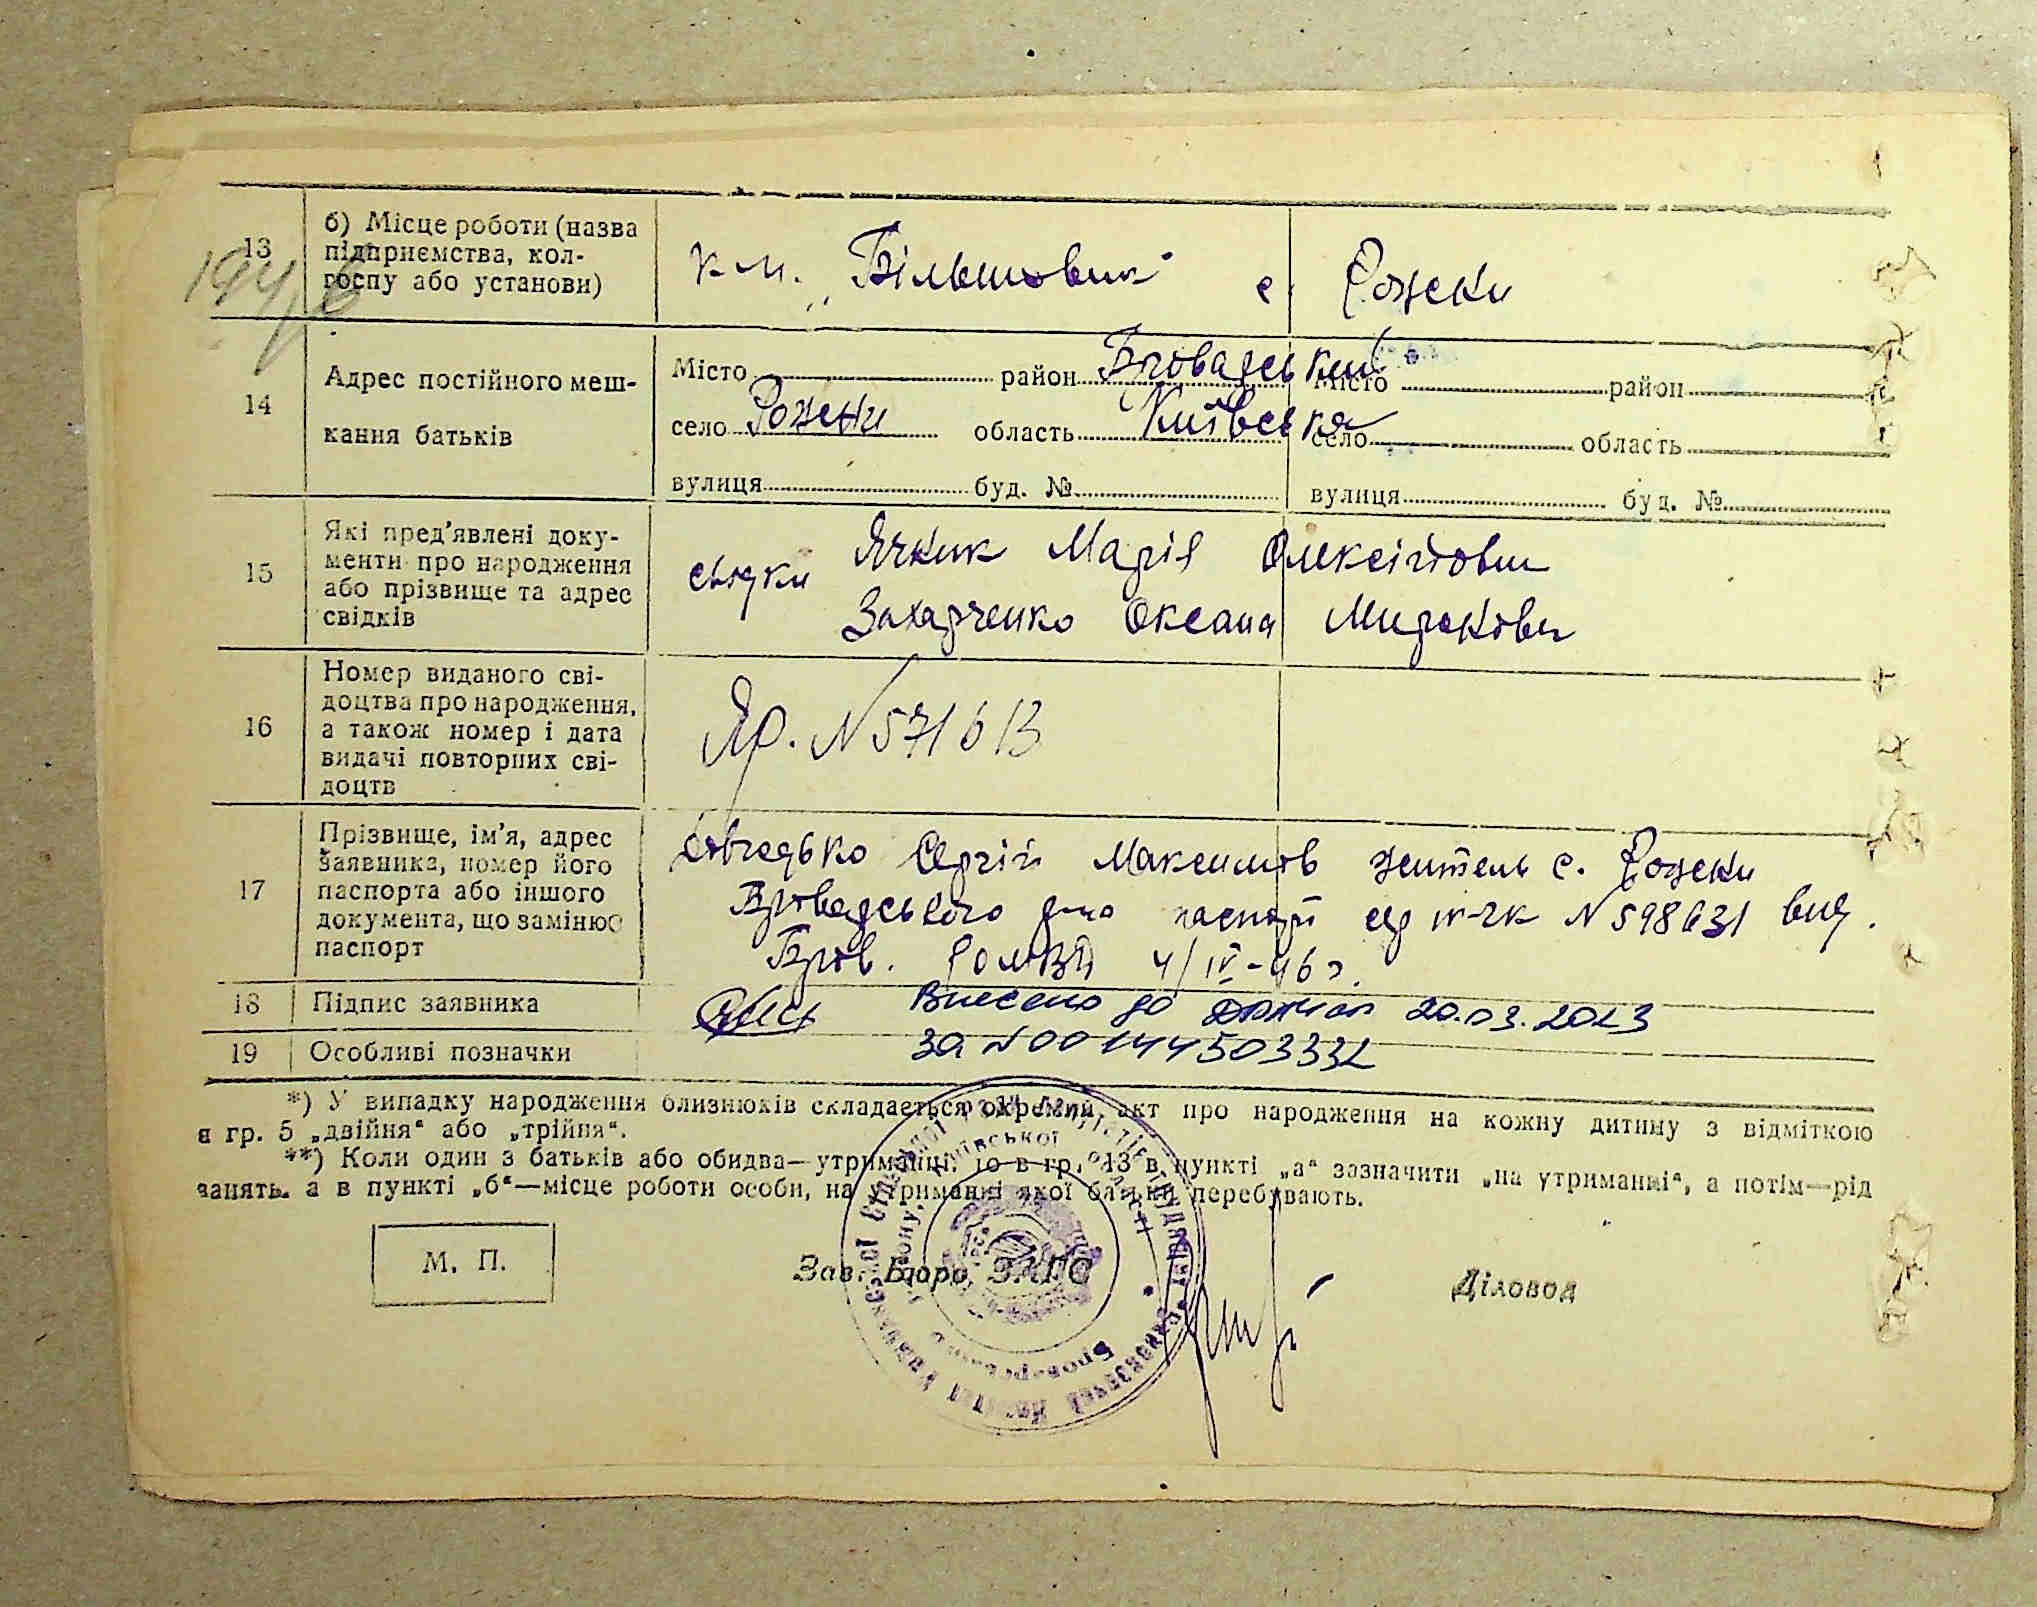 13
б) Місце роботи (назва
підприємства, кол-
госпу або установи)
к-п. „Більшовик" с. Рожни
194
14
Адрес постійного меш-
кання батьків
Місто район Броварський
село Рожни область Київська
вулиця буд. №
Місто район
село область
вулиця буд. №
15
Які пред'явлені доку-
менти про народження
або прізвище та адрес
свідків
свідки Ячник Марія Олексіївни
Захарченко Оксана
16
Номер виданого сві-
доцтва про народження,
а також номер і дата
видачі повторних сві-
доцтв
Яр. N 571613
17
Прізвище, ім'я, адрес
заявника, номер його
паспорта або іншого
документа, що замінює
паспорт
Сергій Максимов житель с. Рожни
Броварського р-на паспорт N 598631 вид.
Бров. 4/IV-46
18
Підпис заявника
19
Особливі позначки
Внесено до ДРАЦС 20.03.2023
за N 00144503332
*) У випадку народження близнюків складається окремий акт про народження на кожну дитину з відміткою
в гр. 5 „двійня" або „трійня".
**) Коли один з батьків або обидва—утриманці, то в гр. 13 в пункті „а" зазначити „на утриманні", а потім—рід
занять, а в пункті „б"—місце роботи особи, на утриманні якої батьки перебувають.
М. П.
Зав. Бюро ЗАГС
Діловод